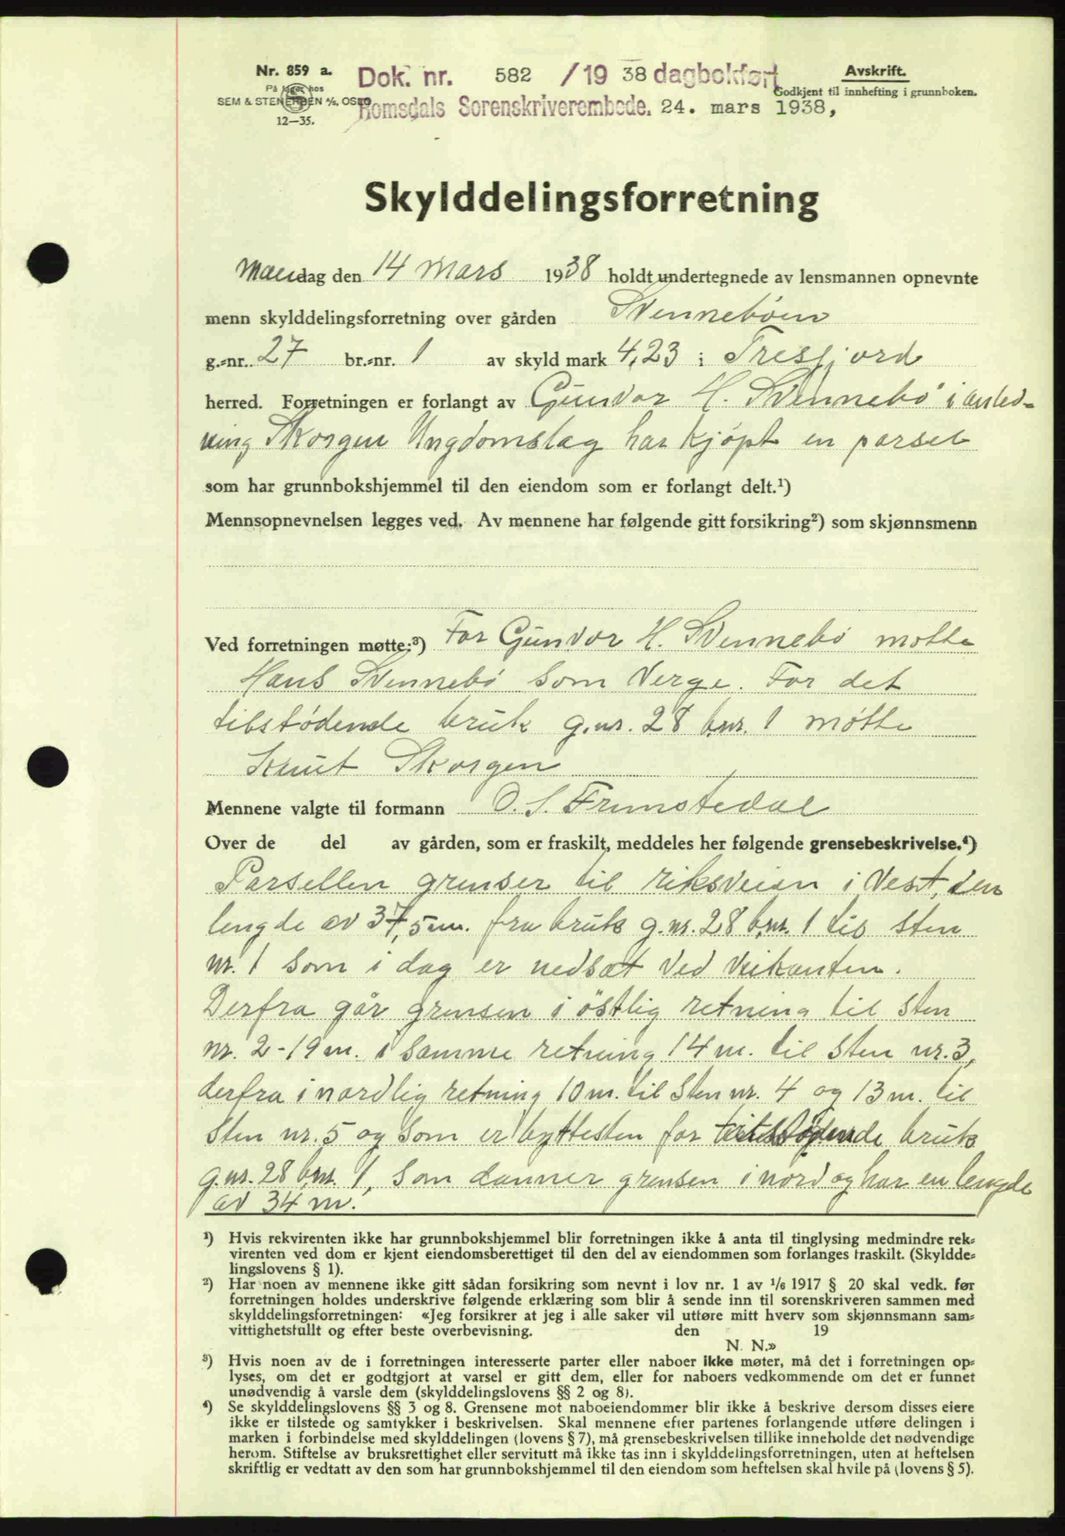 Nr. 859 a.
På lager hos
SEM & STENERSEN A/S, OSLO
12—35.
Dok. nr. 582 / 19 38 dagbokført
Romsdals Sorenskriverembede. 24. mars 1938,
Avskrift.
Godkjent til innhefting i grunnboken.
Skylddelingsforretning
Mandag den 14 Mars 1938 holdt undertegnede av lensmannen opnevnte
menn skylddelingsforretning over gården Svenneböen
g.-nr. 27 br.-nr. 1 av skyld mark 4,23 i Tresfjord
herred. Forretningen er forlangt av Gunvor H. Svennebö i anled-
ning Skorgen Ungdomslag har kjöpt en parsel
som har grunnbokshjemmel til den eiendom som er forlangt delt.¹)
Mennsopnevnelsen legges ved. Av mennene har følgende gitt forsikring²) som skjønnsmenn
Ved forretningen møtte:³) For Gunvor H. Svennebö mötte
Hans Svennebö som Verge. For det
tilstödende bruk g.nr. 28 b.nr. 1 mötte
Knut Skorgen
Mennene valgte til formann O. S. Fremstedal
Over de del av gården, som er fraskilt, meddeles her følgende grensebeskrivelse.⁴)
Parsellen grenser til riksveien i Vest, den
lengde av 37,5 m. fra bruk g.nr. 28 b.nr. 1 til sten
nr. 1 som i dag er nedsat ved veikanten.
Derfra går grensen i östlig retning til sten
nr. 2 - 19 m. i samme retning 14 m. til sten nr. 3,
derfra i nordlig retning 10 m. til sten nr. 4 og 13 m. til
sten nr. 5 og som er byttesten for tilstödende bruk
g.nr. 28 b.nr. 1, som danner grensen i nord og har en lengde
av 34 m.
¹) Hvis rekvirenten ikke har grunnbokshjemmel blir forretningen ikke å anta til tinglysing medmindre rek-
virenten ved dom er kjent eiendomsberettiget til den del av eiendommen som forlanges fraskilt. (Skyldde-
lingslovens § 1).
²) Har noen av mennene ikke gitt sådan forsikring som nevnt i lov nr. 1 av 1/6 1917 § 20 skal vedk. før
forretningen holdes underskrive følgende erklæring som blir å sende inn til sorenskriveren sammen med
skylddelingsforretningen: «Jeg forsikrer at jeg i alle saker vil utføre mitt hverv som skjønnsmann sam-
vittighetsfullt og efter beste overbevisning. den 19
N. N.»
³) Hvis noen av de i forretningen interesserte parter eller naboer ikke møter, må det i forretningen op-
lyses, om det er godtgjort at varsel er gitt dem, eller for naboers vedkommende om det er funnet
unødvendig å varsle dem (skylddelingslovens §§ 2 og 8).
⁴) Se skylddelingslovens §§ 3 og 8. Grensene mot naboeiendommer blir ikke å beskrive dersom disses eiere
ikke er tilstede og samtykker i beskrivelsen. Skal mennene efter partenes forlangende utføre delingen i
marken i forbindelse med skylddelingen (lovens § 7), må grensebeskrivelsen tillike inneholde det nødvendige
herom. Stiftelse av bruksrettighet eller servitutt må ikke tas inn i skylddelingsforretningen, uten at heftelsen
skriftlig er vedtatt av den som har grunnbokshjemmel til den eiendom som heftelsen skal hvile på (lovens § 5).